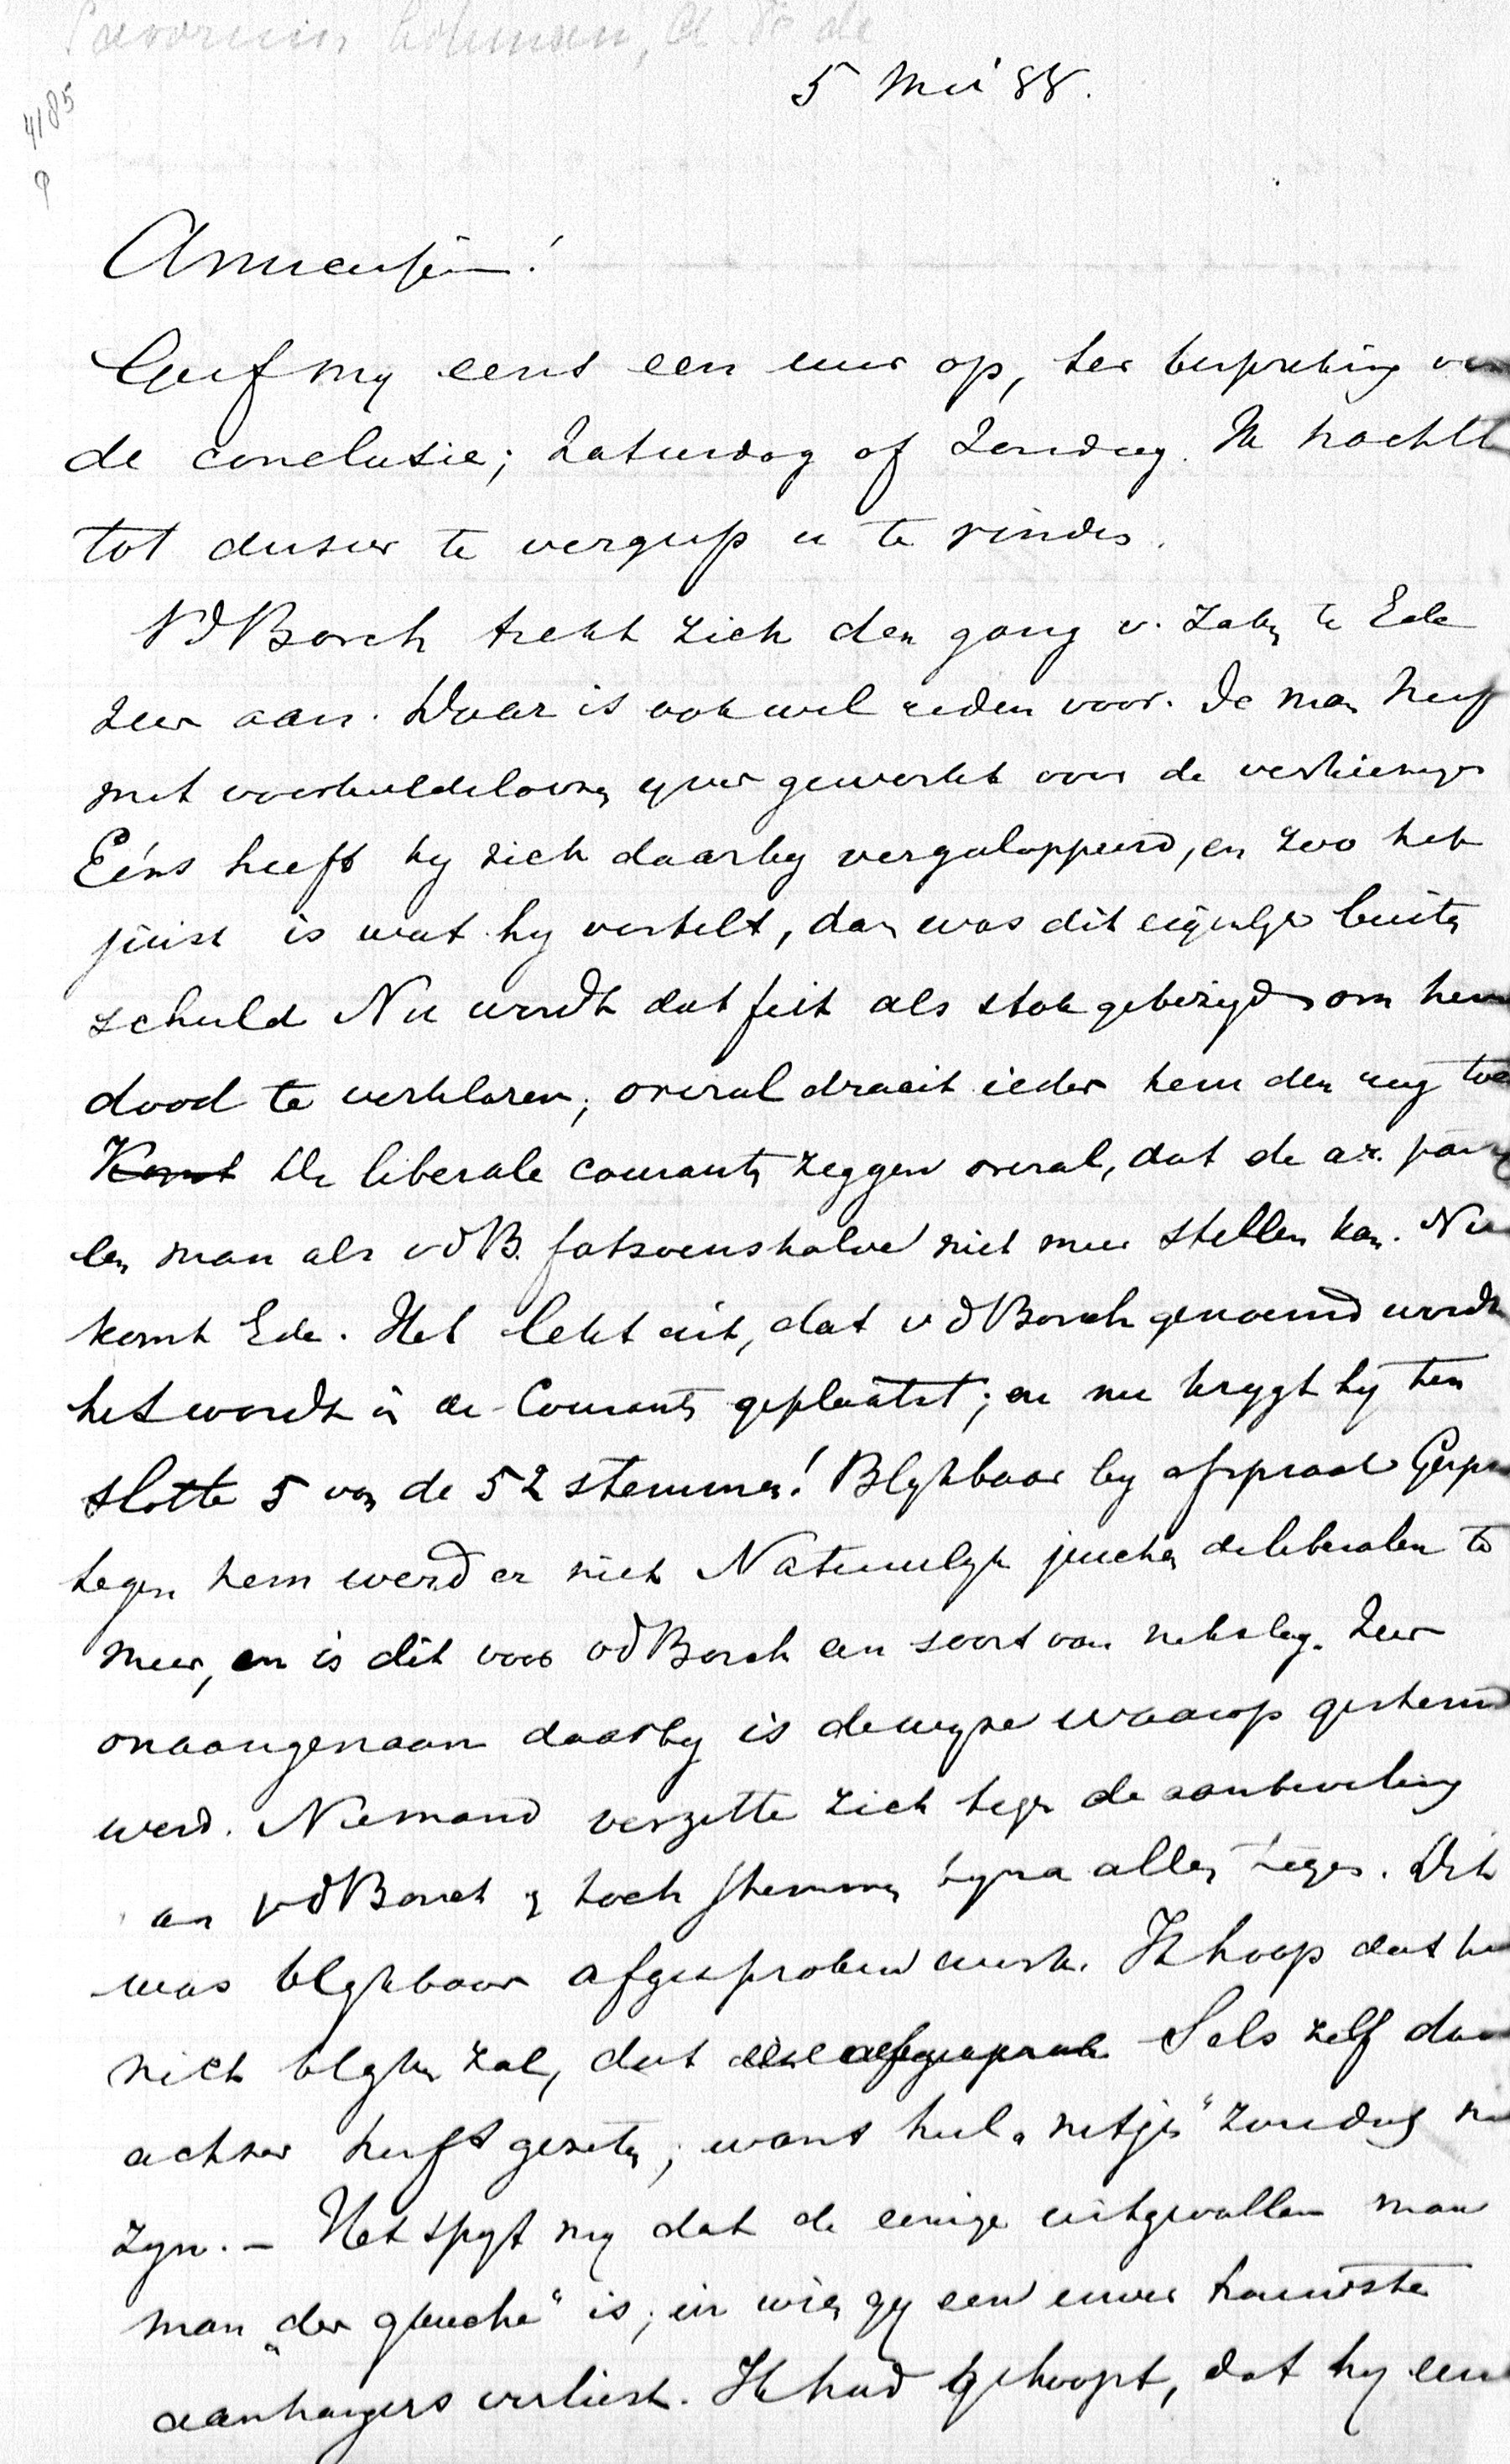 Savornin Lohman, A F de
5 Mei 88.
4185
Amicissime!
Geef my eens een uur op, ter bespreking van
de conclusie; Zaturdag of Zondag. Ik trachtte
tot dusver te vergeefs u te vinden.
VdBorch trekt zich den gang v. zaken te Ede
zeer aan. Daar is ook wel reden voor. De man heeft
met voorbeeldeloozen yver gewerkt voor de verkiezingen
Eéns heeft hy zich daarby vergaloppeerd, en zoo het
juist is wat hy vertelt, dan was dit eigenlyk buiten
schuld Nu wordt dat feit als stok gebezigd om hem
dood te verklaren; overal draait ieder hem den rug toe
Komt De liberale couranten zeggen overal, dat de a.r. party
een man als vdB. fatsoenshalve niet meer stellen kan. Nu
komt Ede. Het lekt uit, dat vdBorch genoemd wordt
het wordt in de Couranten geplaatst; en nu krygt hy ten
slotte 5 van de 52 stemmen! Blykbaar by afspraak
tegen hem werd er niet Natuurlyk juichen de liberalen te
meer, en is dit voor vdBorch een soort van nekslag. Zeer
onaangenaam daarby is de wyze waarop gestemd
werd. Niemand verzette zich tegen de aanbeveling
an vdBorch en toch stemmen byna allen tegen. Dit
was blykbaar afgesproken werk. Ik hoop dat het
niet blyken zal, dat deze afspraak Sels zelf daar
achter heeft gezeten; want heel "netjes" zou dus niet
zyn. – Het spyt my dat de eenige uitgevallen man
man "der gauche" is; in wien gy een uwer trouwste
aanhangers verliest. Ik had gehoopt, dat hy een